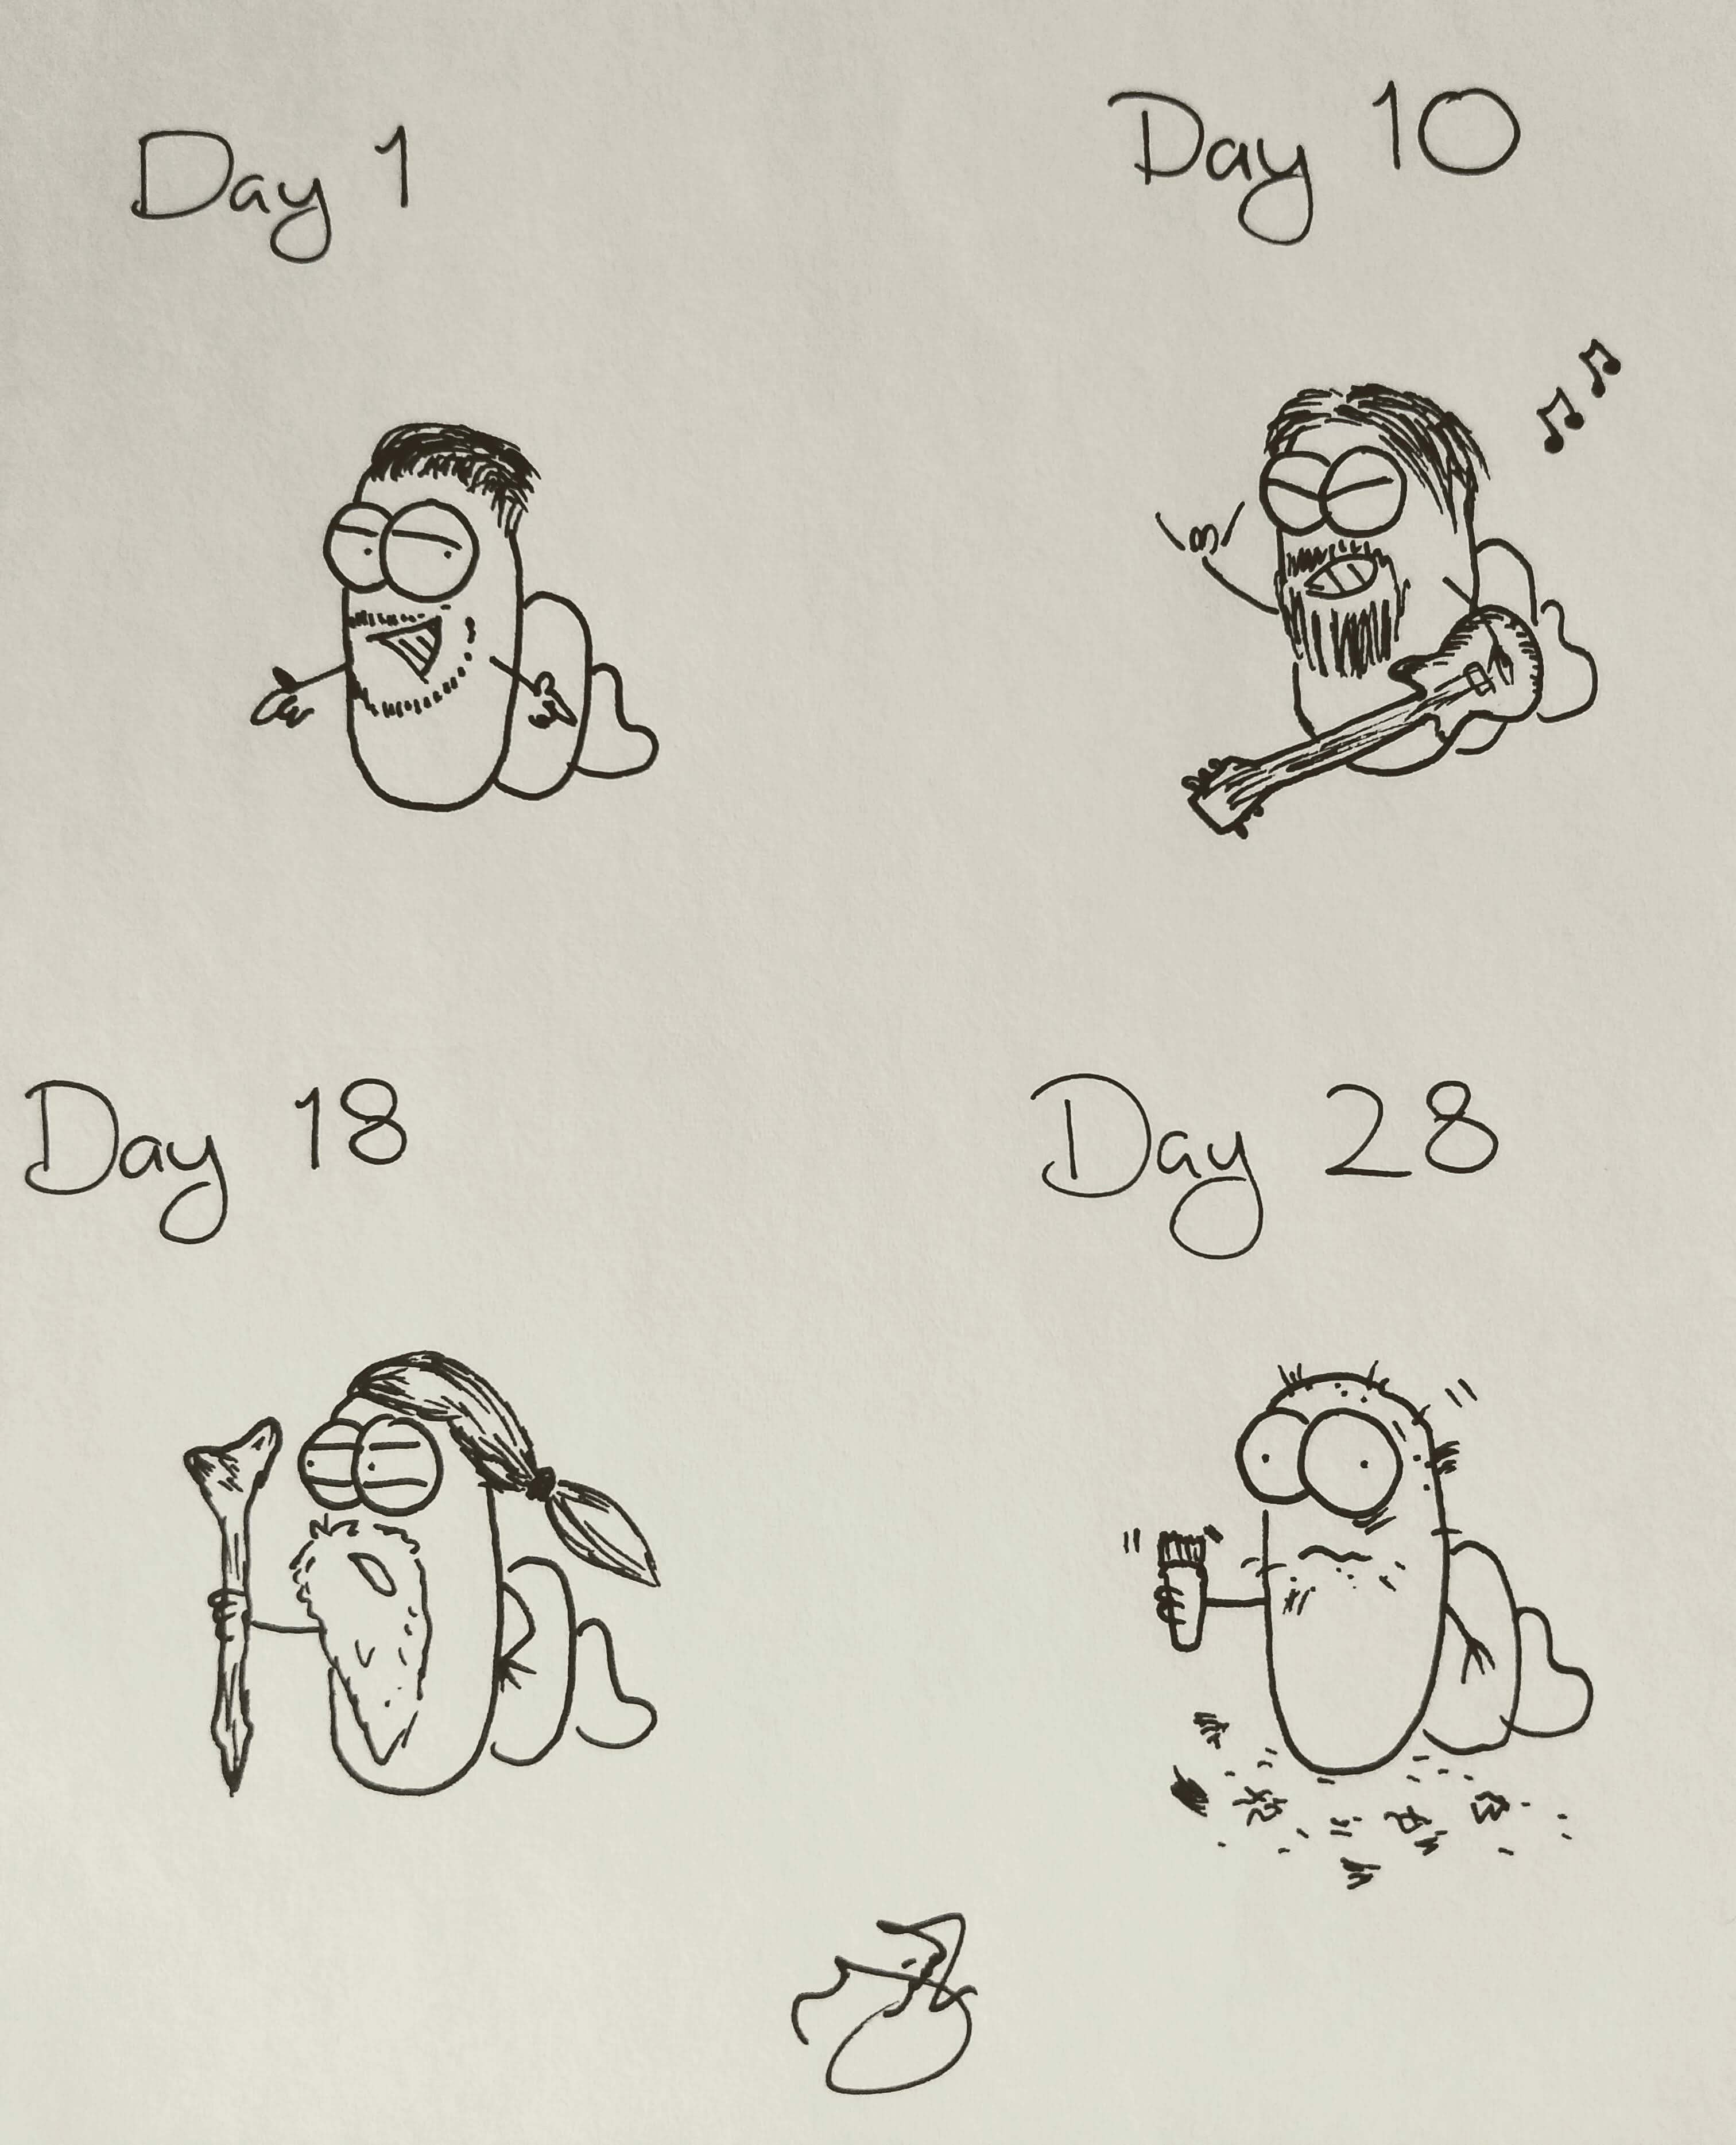 Day 1
Day 10
Day 18
Day 28